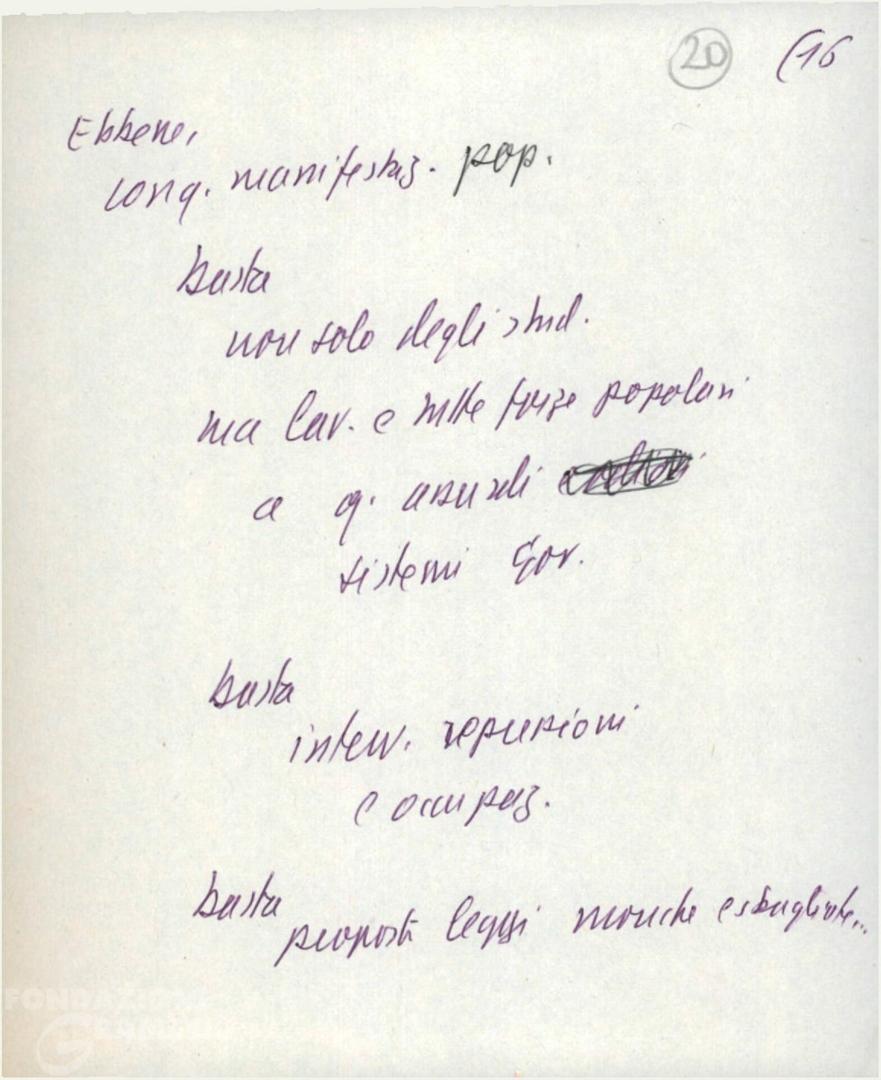 20 (16
Ebbene,
con q. manifestaz. pop.
basta
non solo degli stud.
ma lav. e tutte forze popolari
a q. assurdi
sistemi Gov.
basta
interv. repressioni
e occupaz.
basta
proposte leggi monche e sbagliate...
FONDAZIONE
GRAMSCI